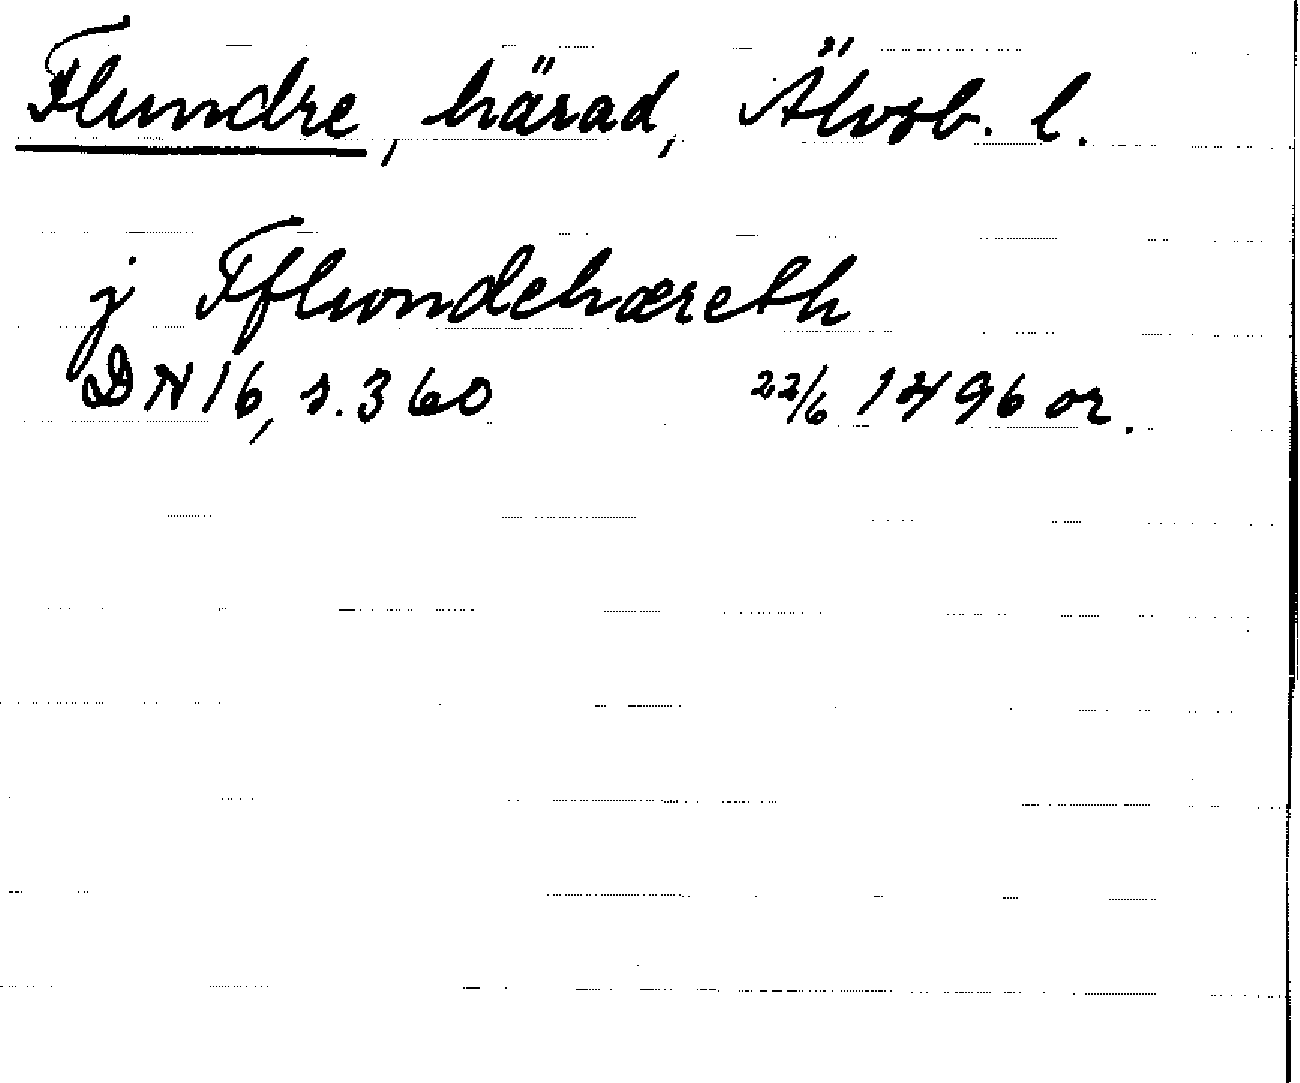 Flundre, härad, Älvsb. l.
j Fflwndehæreth
DN 16, s. 360 22/6 1496 or.